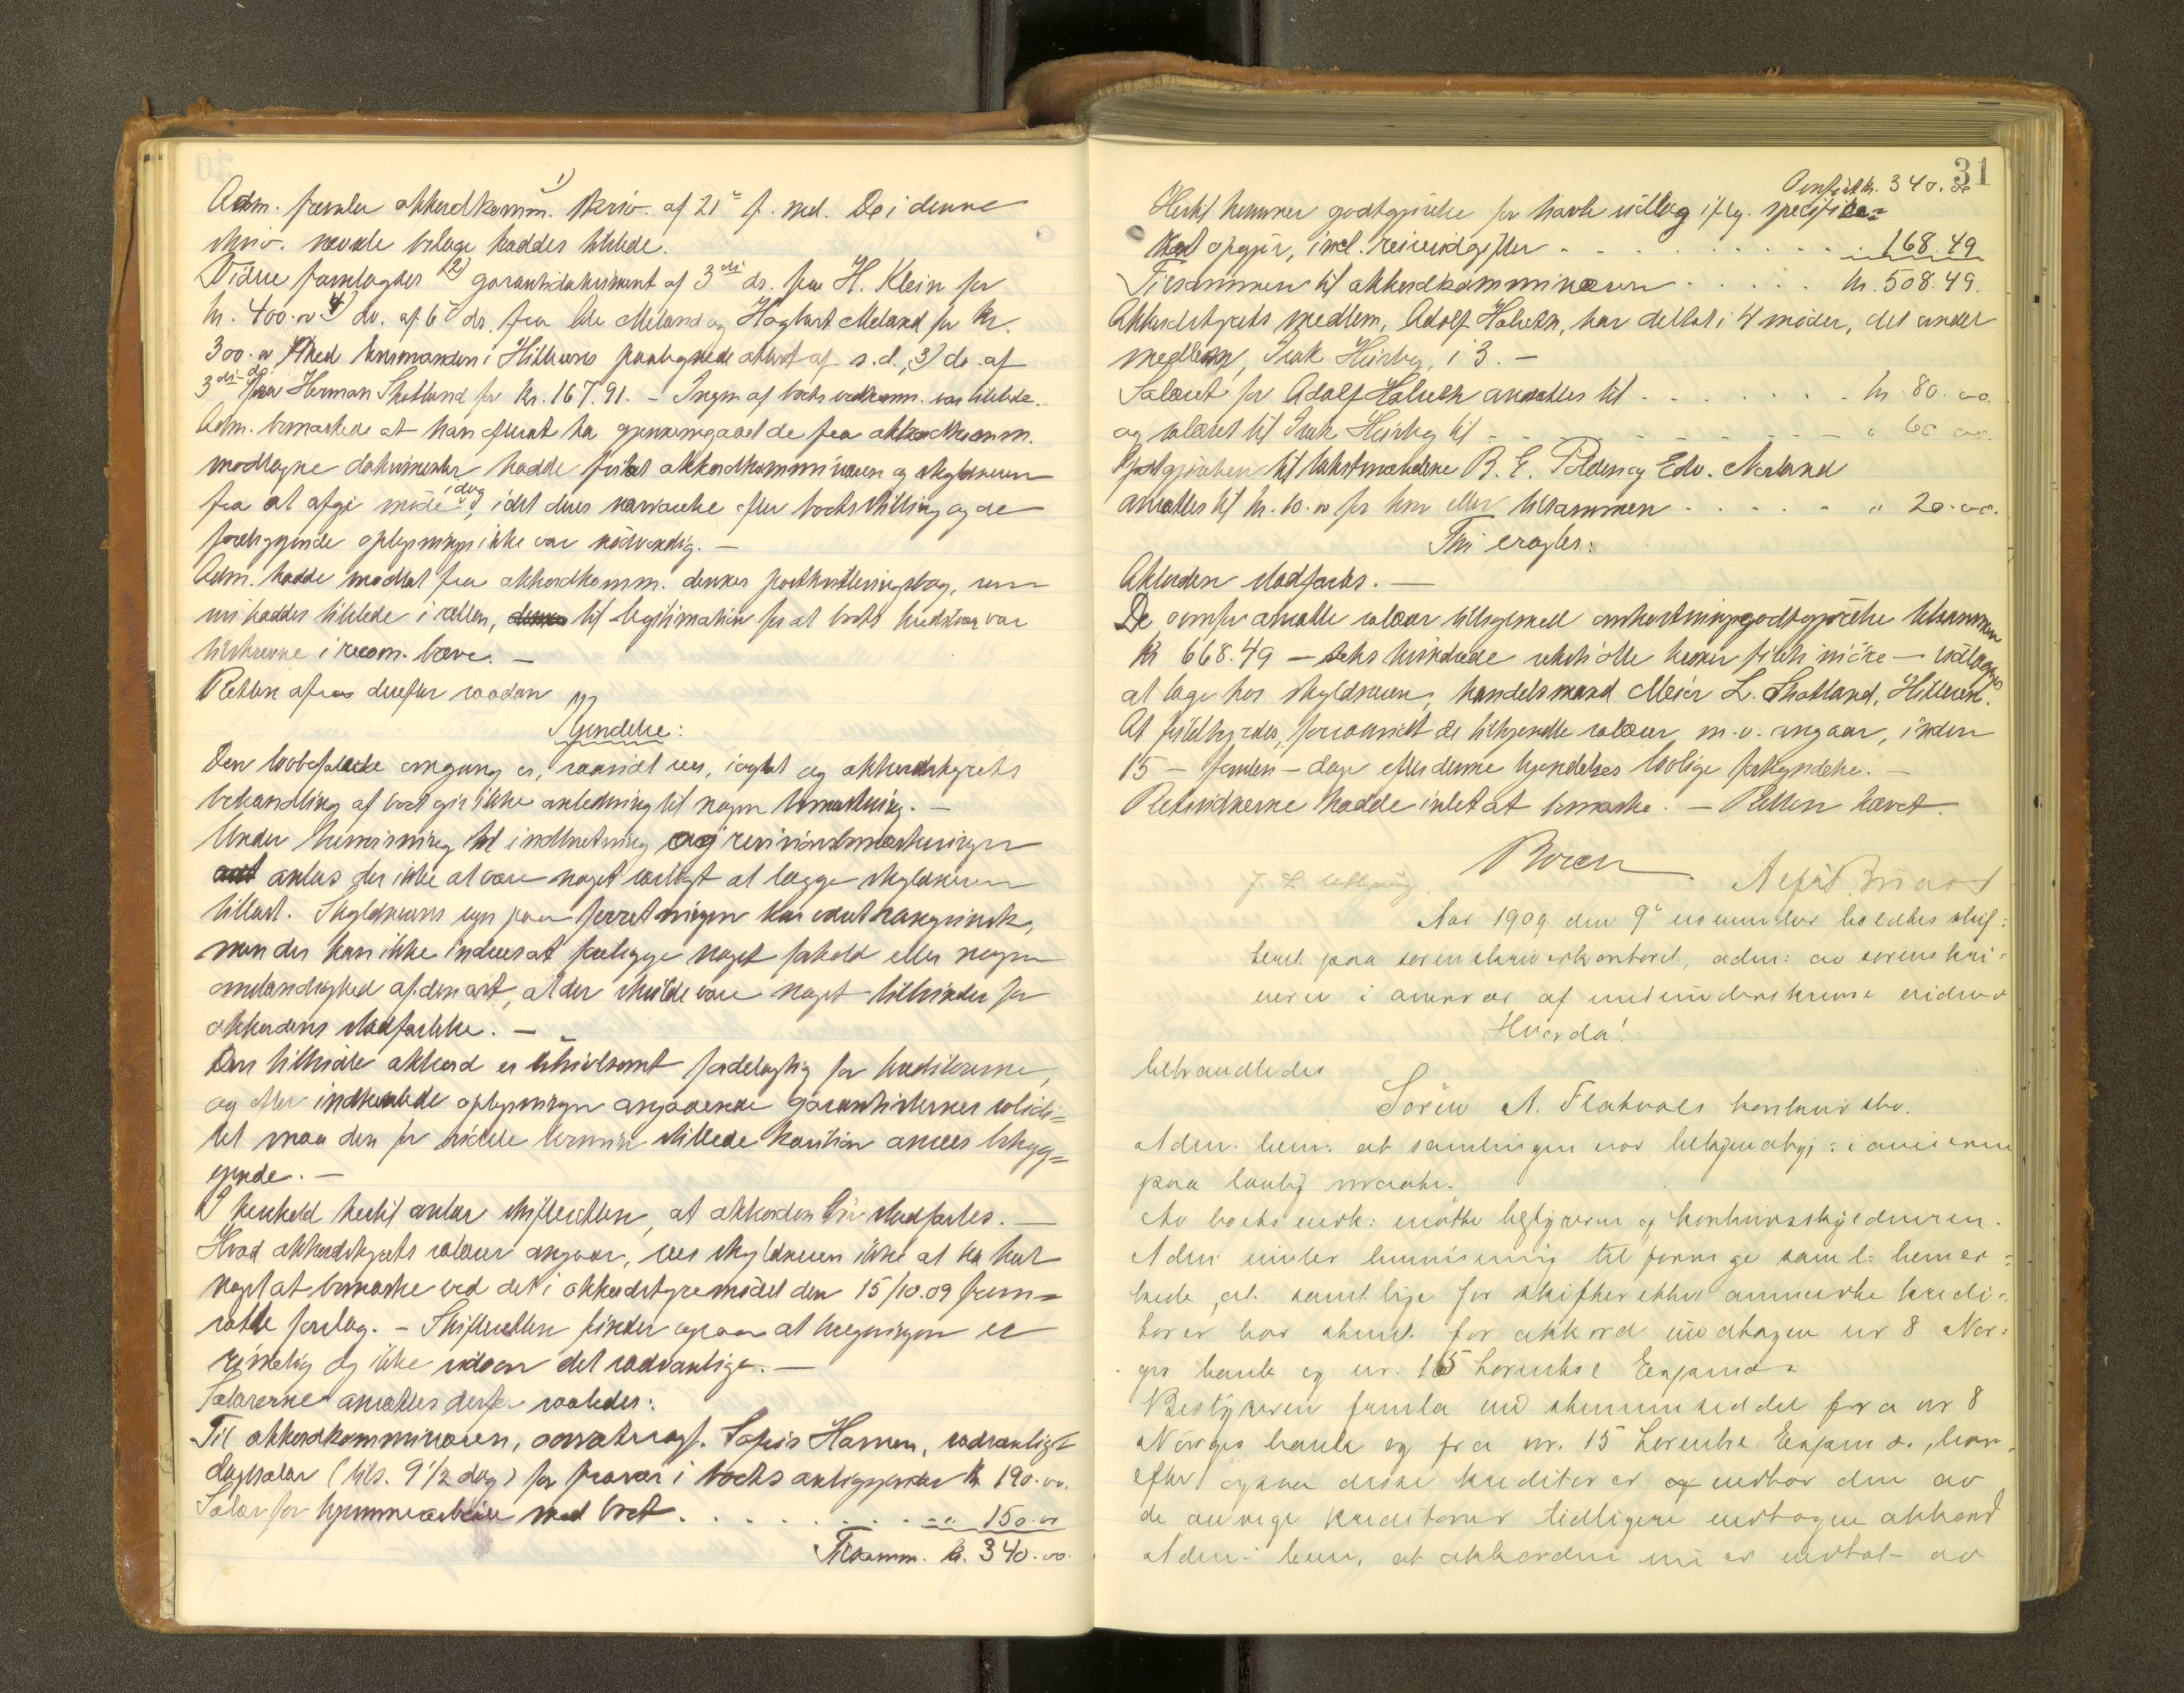 Adm. fremla akkordkomm. 1) skriv. af 21' f. md. De i denne
skriv. nævnte bilage haddes tilstede.
Videre fremlagdes 2) garantidokument af 3die ds. fra H. Klein for
kr. 400.00 4) do. af 6' ds. fra Ole Meland og Hogbart Meland for kr.
300.00 med lensmanden i Hitterøs paategnede attest af s.d., 3) do. af
3die ds. fra Herman Shotland for kr. 167.91. – Ingen af boets vedkomm. var tilstede.
Adm. bemærkede at han efterat ha gjennemgaaet de fra akkordkomm.
modtagne dokumenter hadde fritat akkordkommissæren og skyldneren
fra at afgi møde idag, idet deres nærværelse efter boets stilling og de
foreliggende oplysninger ikke var nødvendig. –
Adm. hadde modtat fra akkordkomm. dennes postkvitteringsbog, som
nu haddes tilstede i retten, til legitimation for at boets kreditorer var
tilskrevne i recom. breve. –
Retten afsa derefter saadan
Kjendelse:
Den lovbefalede omgang er, saavidt sees, iagtat og akkordstyrets
behandling af boet gir ikke anledning til nogen bemærkning. –
Under henvisning til indberetning og revisionsbemærkninger
antas der ikke at være noget særligt at lægge skyldneren
tillast. Skyldnerens syn paa forretningen har været
men der kan ikke indsees at foreligge noget forhold eller nogen
omstændighed af den art, at der skulde være noget tilhinder for
akkordens stadfæstelse. –
Den tilbudte akkord er utvivlsomt fordelagtig for kreditorerne,
og efter indhentede oplysninger angaaende garantisternes solidi=
tet maa den for sidste termin stillede kaution ansees betryg=
gende. –
I henhold hertil antar skifteretten, at akkorden bør stadfæstes. –
Hvad akkordstyrets salærer angaar, sees skyldneren ikke at ha hat
noget at bemærke ved det i akkordstyremødet den 15/10.09 frem=
satte forslag. – Skifteretten finder ogsaa at beregningen er
rimelig og ikke utover det sedvanlige. –
Salærerne ansættes derfor saaledes:
Til akkordkommissæren, overretssagf. Sofus Hansen, sedvanligt
dagsalær (tils. 9 1/2 dag) for fravær i boets anliggender kr. 190.00.
Salær for hjemmearbeide med boet . . . . . . . . " 150.00
Tilsamm. kr. 340.00.
31
Overført kr. 340.00
Hertil kommer godtgjørelse for havte utlæg iflg. specifice=
ret opgjør, incl. reiseudgifter . . . . . . . . 168.49
Tilsammen til akkordkommissæren . . . . . kr. 508.49.
Akkordstyrets medlem, Adolf Halvorsen, har deltat i 4 møder, det andet
medlem, Isak i 3. –
Salæret for Adolf Halvorsen ansættes til . . . . . . . kr. 80.00.
og salæret til Isak til . . . . . . . . " 60.00.
Godtgjørelsen til takstmændene B. E. og Edv. Nesland
ansættes til kr. 10.00 for hver eller tilsammen . . . . . " 20.00.
Thi eragtes:
Akkorden stadfæstes. –
De ovenfor ansatte salær tilligemed omkostningsgodtgjørelse tilsammen
kr 668.49 – seks hundrede seksti otte kroner firti ni øre – utlægges
at tage hos skyldneren, handelsmand Meier L. Shotland, Hitterøn.
At fuldbyrdes, forsaavidt de tilkjendte salærer m.v. angaar, inden
15 – femten – dage efter denne kjendelses lovlige forkyndelse. –
Retsvidnerne hadde intet at bemærke. – Retten hævet.
Aar 1909 den 9' november holdtes skif=
teret paa sorenskriverkontoret, adm: av sorenskri=
veren i overvær af undenderskrevne vidner
Hvorda!
behandledes
Sören A. Flatvals konkursbo.
Adm. bem: at samlingen var bekjendtgj: i aviserne
paa lovlig maate.
Av boets vedk: mötte bestyreren og konkursskyldneren.
Adm under henvisning til forrige saml: bemer=
kede, at samtlige for skifteretten anmeldte kredi=
torer har stemt for akkord undtagen nr 8 Nor=
ges bank og nr. 15 Lorentse Espnæs
Bestyreren fremla nu stemmeseddel fra nr 8
Norges bank og fra nr. 15 Lorentse Espnæs, hvor=
efter ogsaa disse kreditorer vedtar den av
de øvrige kreditorer tidligere vedtagne akkord
Adm. bem, at akkorden nu er vedtat av